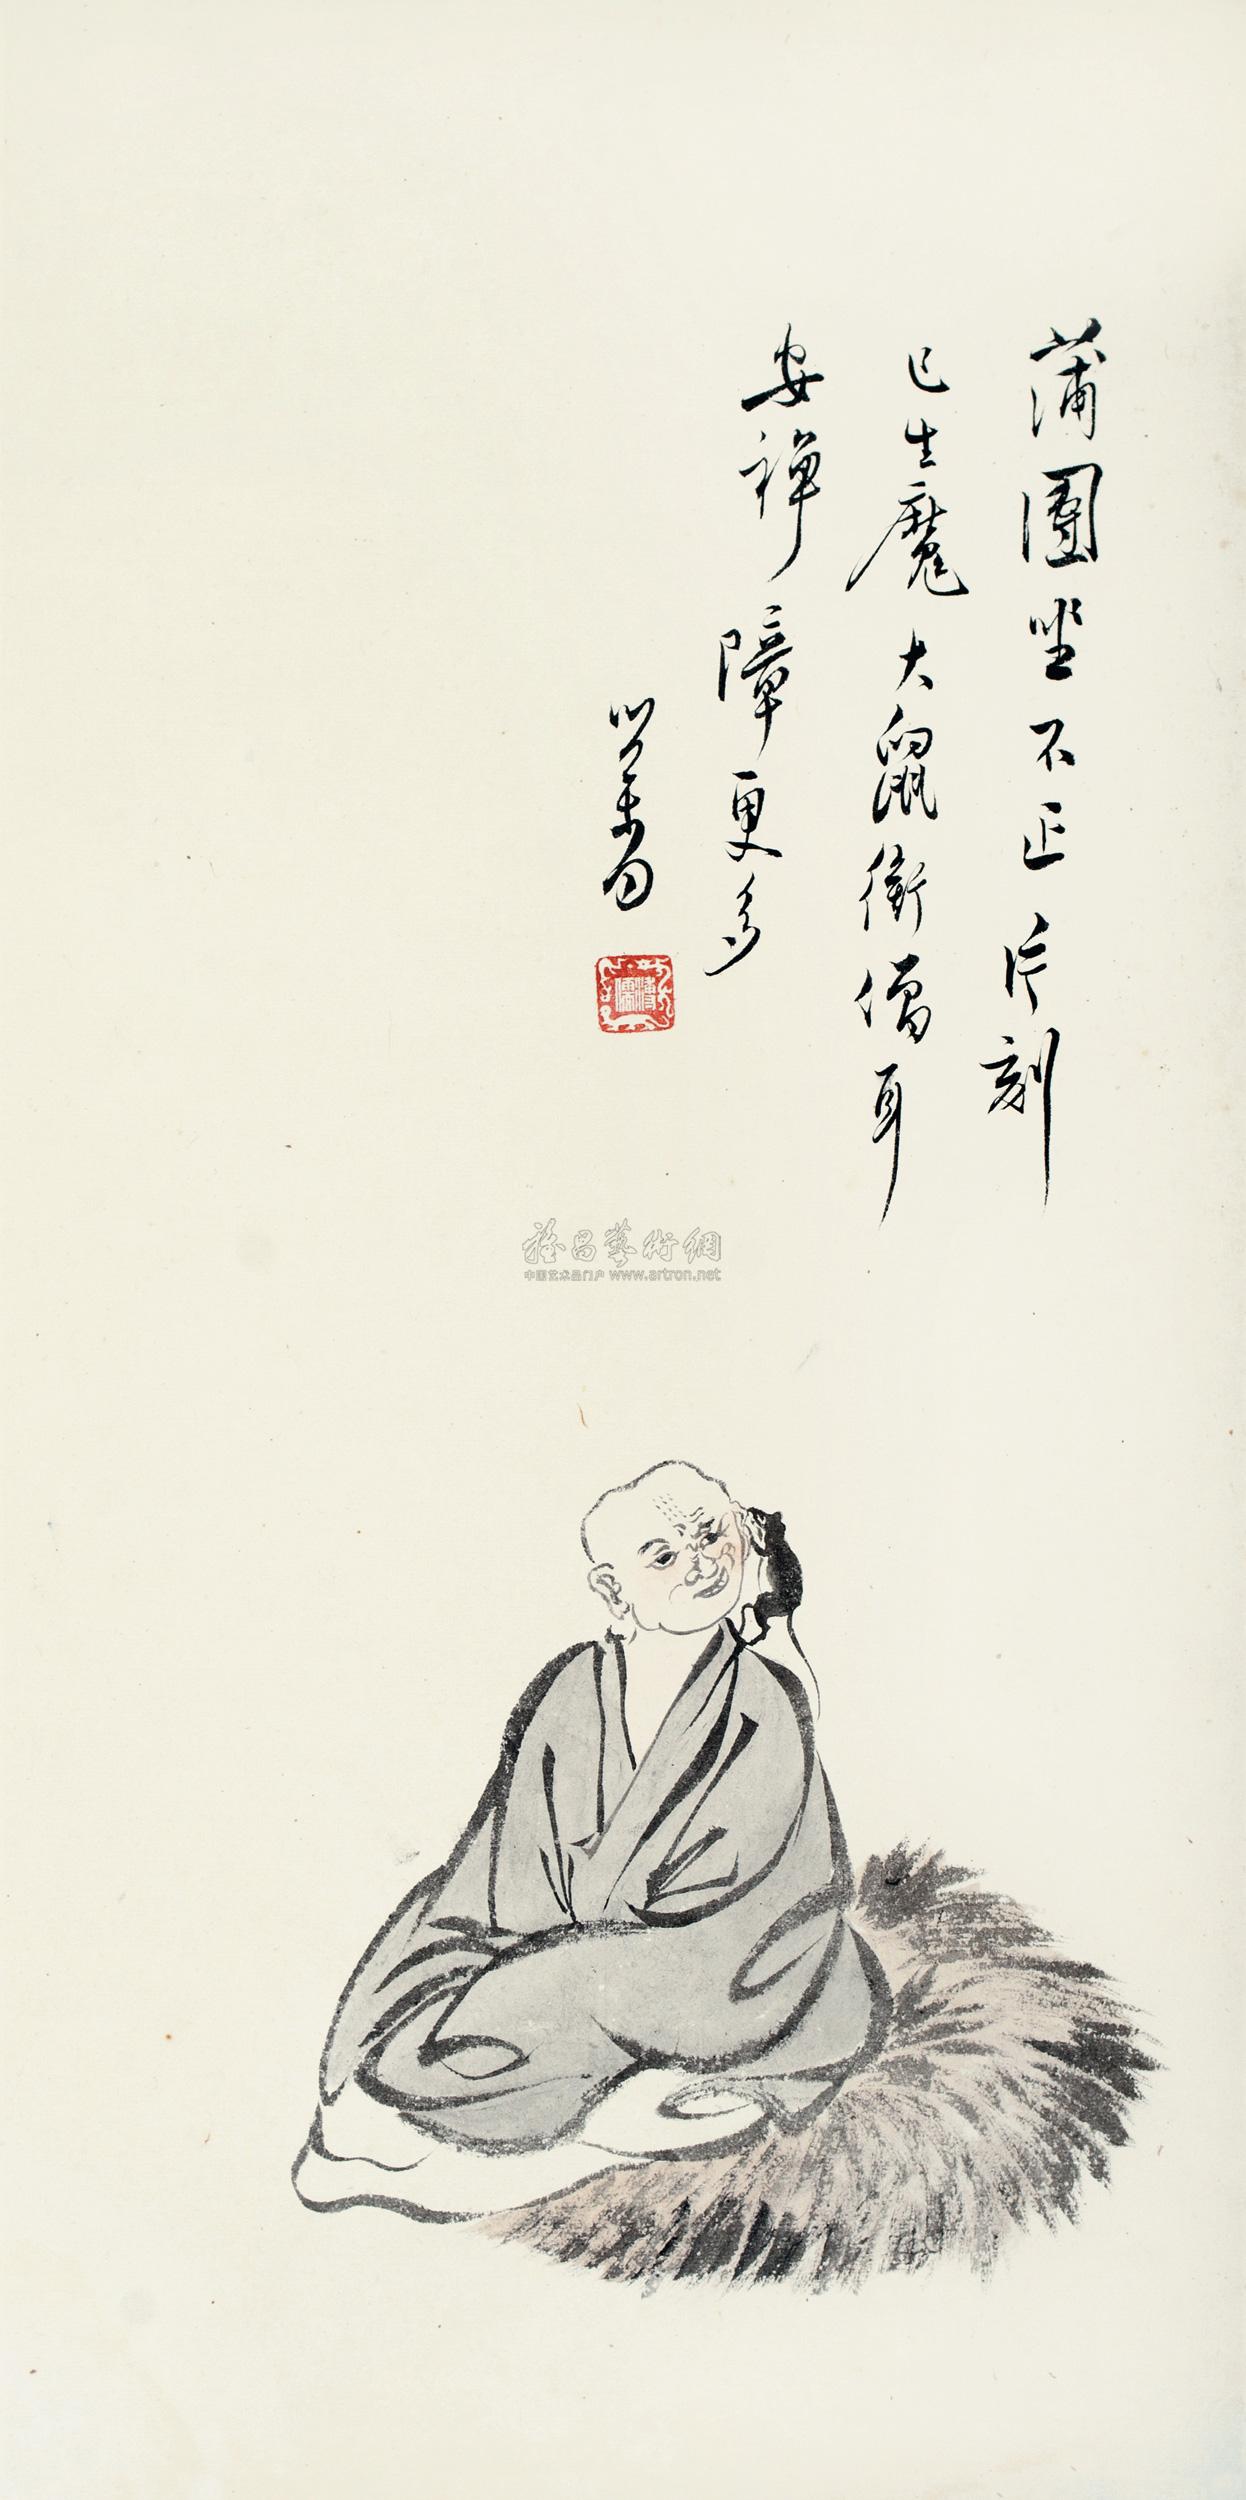 蒲團坐不正片刻
已生魔大鼠銜僧耳
安禪障更多
心畬
溥儒
雅昌藝術網
中国艺术品门户 www.artron.net